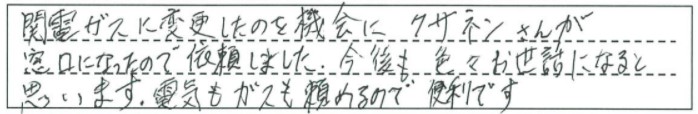 関電ガスに変更したのを機会に クサネンさんが
窓口になったので依頼しました．今後も色々お世話になると
思います．電気もガスも頼めるので便利です